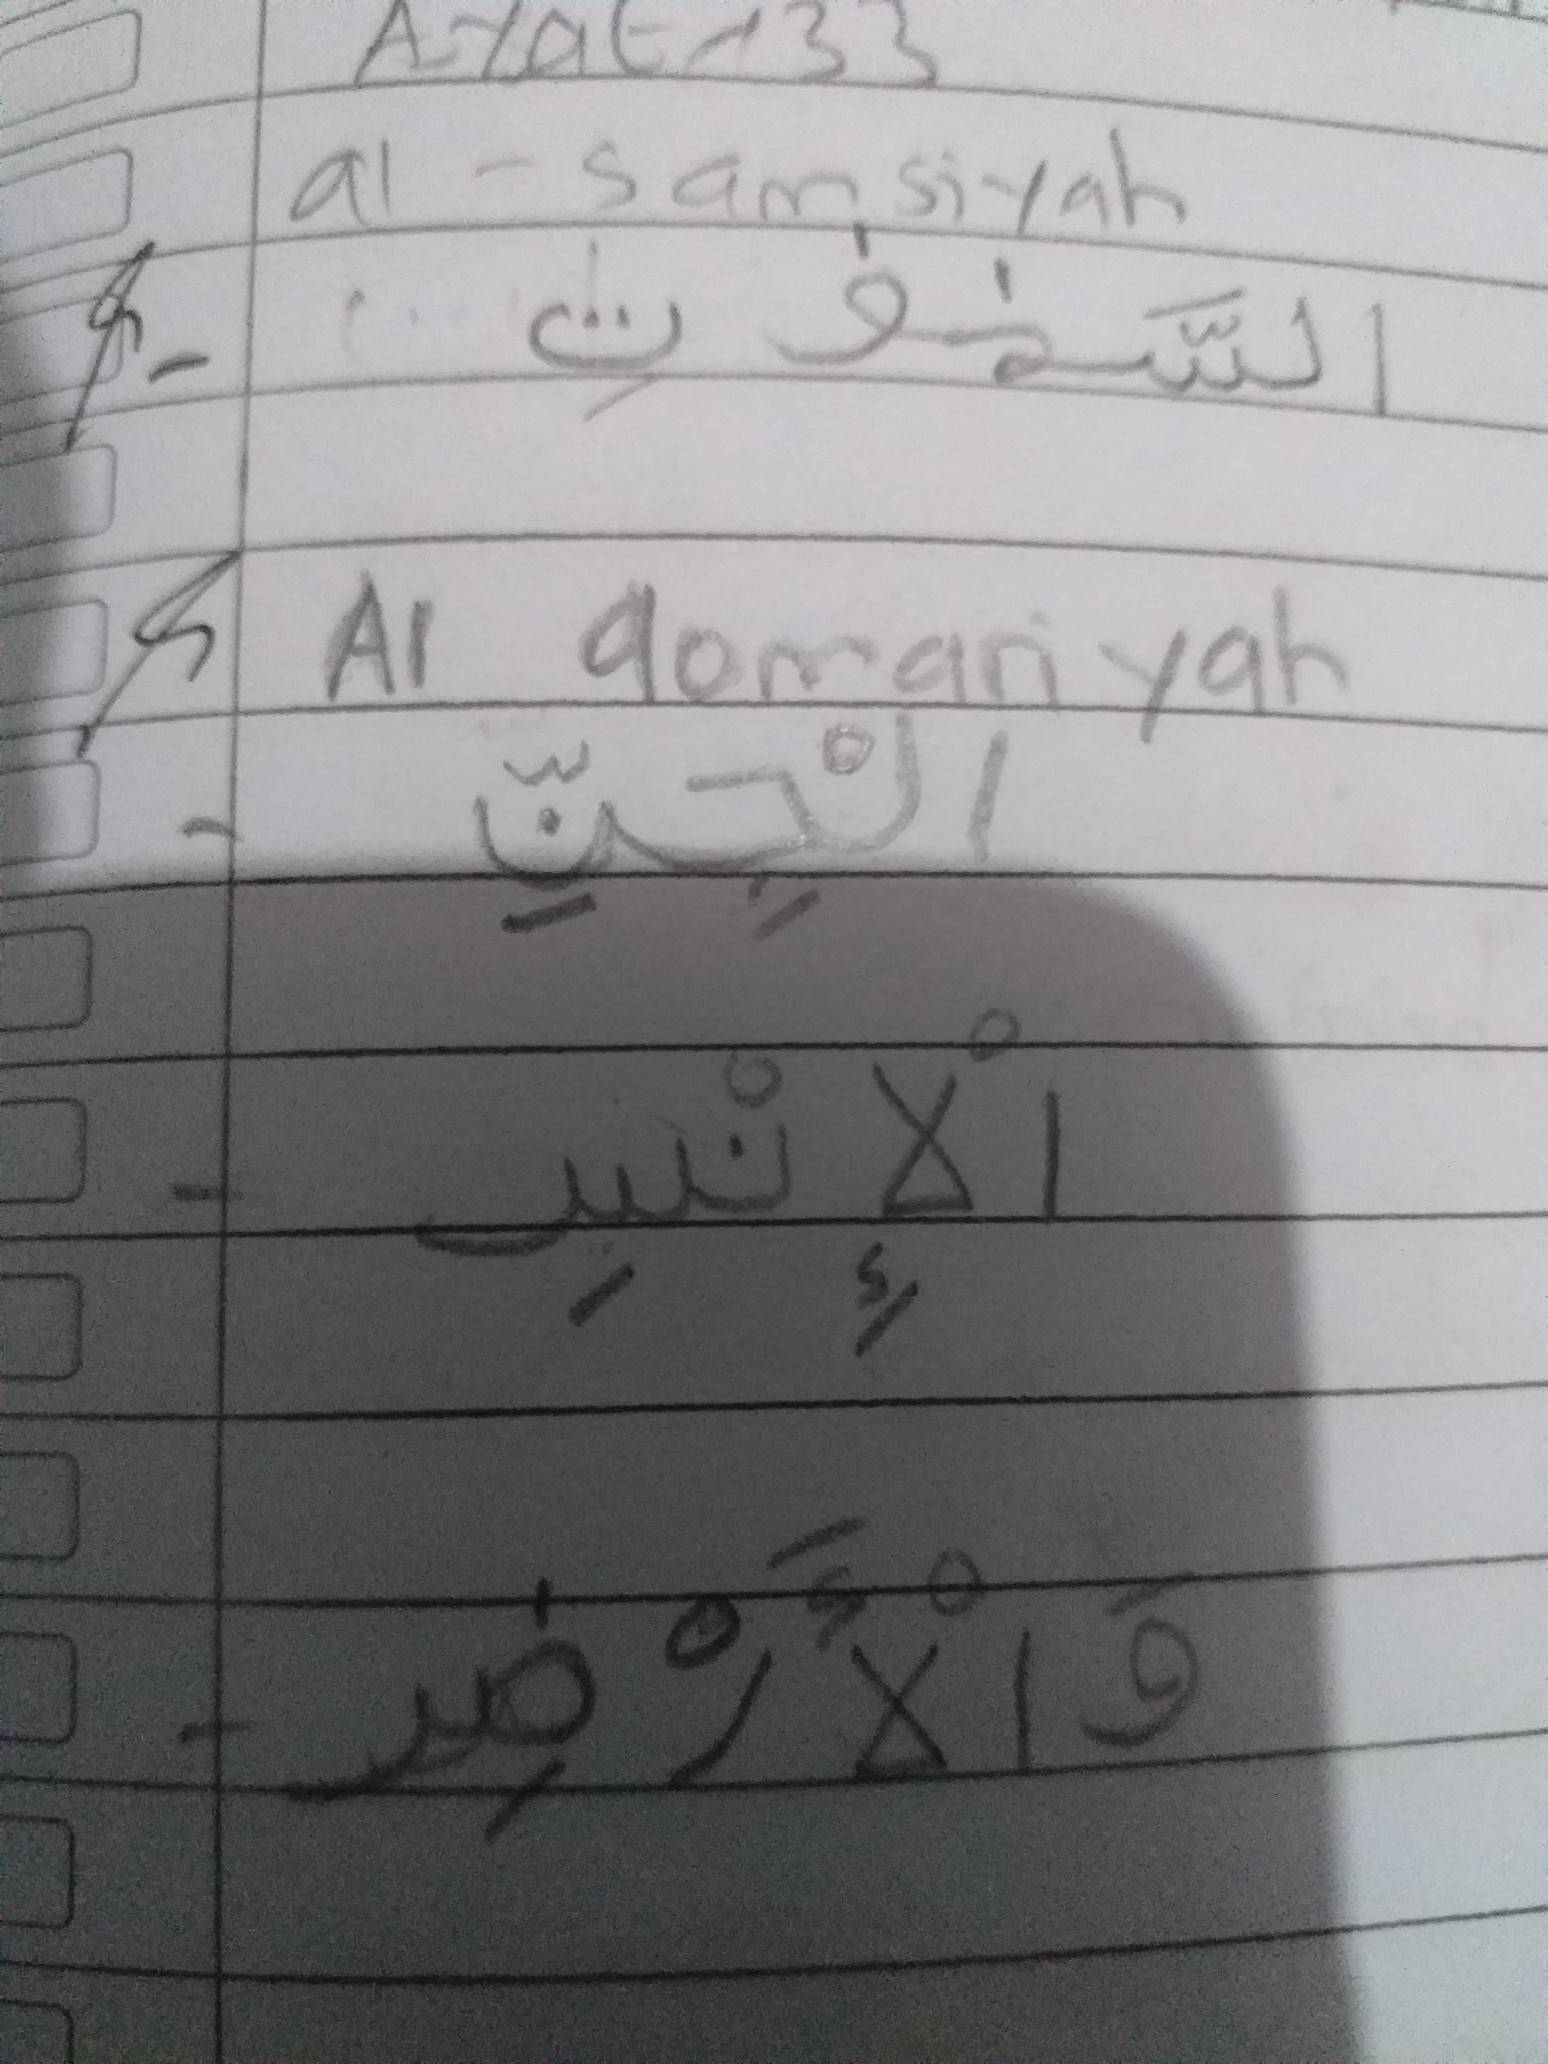 Ayat 33
al - samsiyah
- السَّمٰوٰتِ
Al qomariyah
- الْجِنِّ
- الْاِنْسِ
- وَالْاَرْضِ